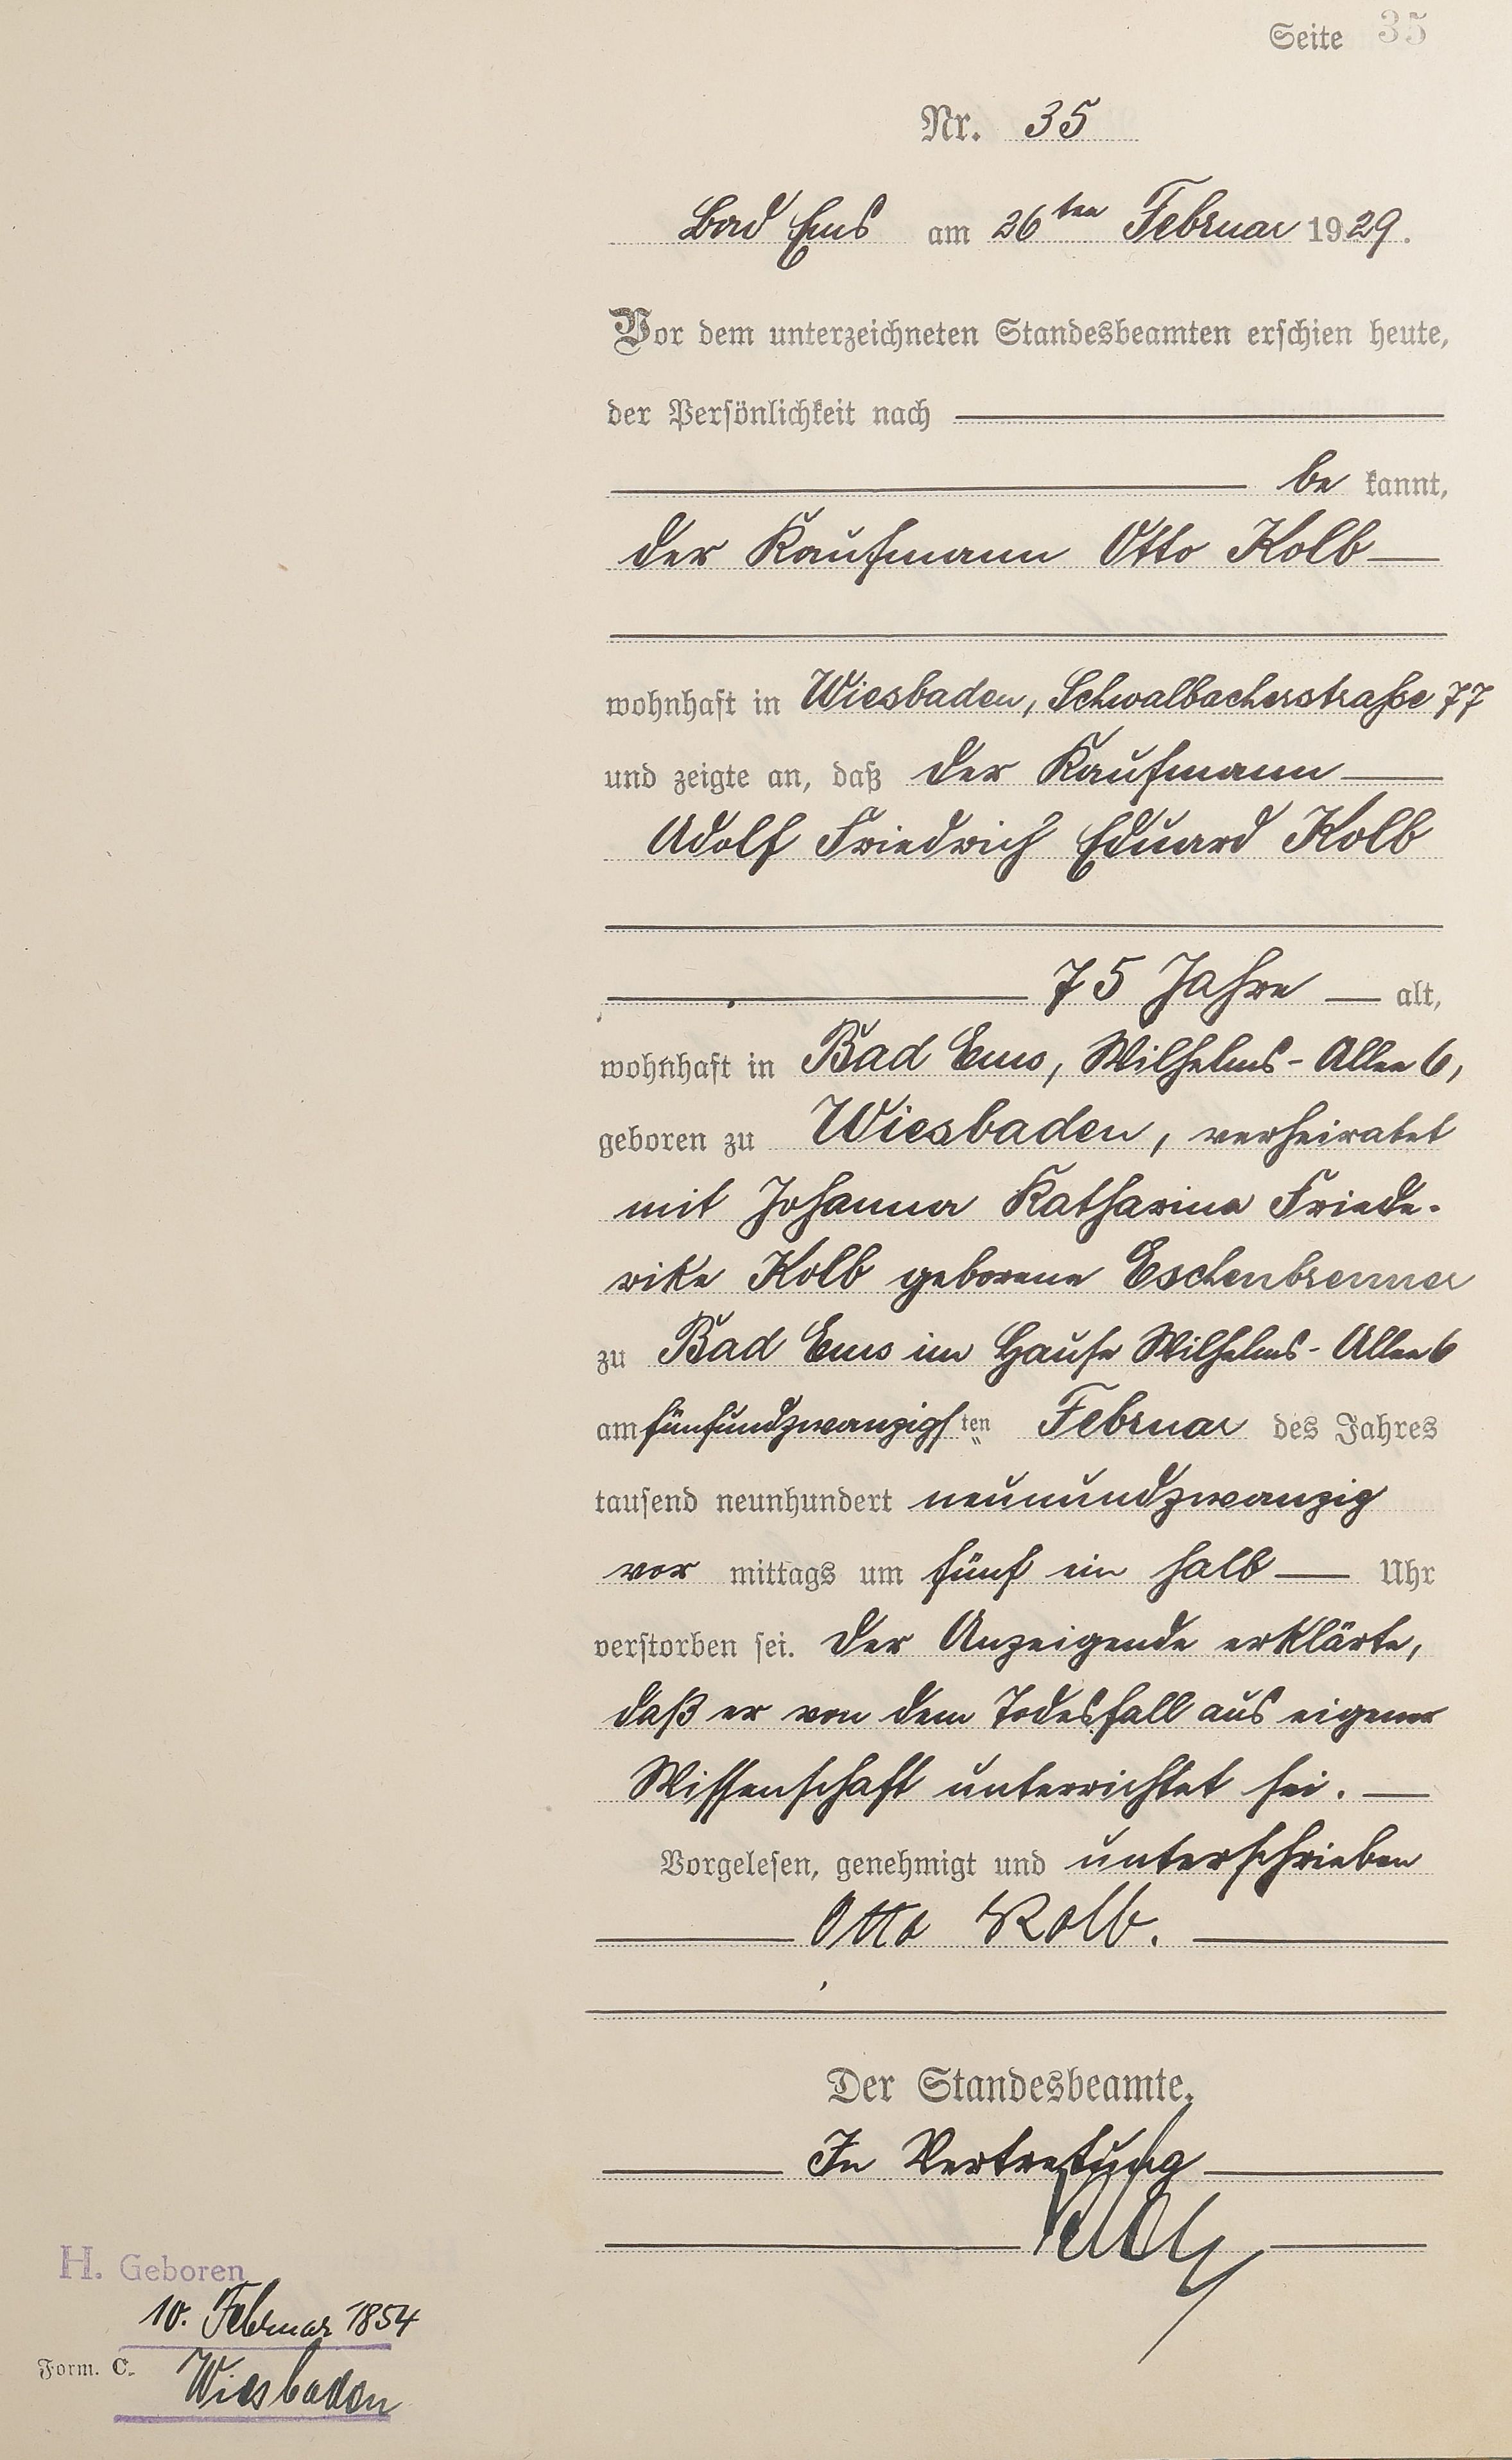 Seite 35
Nr. 35
Bad Ems am 26ten Februar 1929.
Vor dem unterzeichneten Standesbeamten erschien heute,
der Persönlichkeit nach
be kannt,
der Kaufmann Otto Kolb
wohnhaft in Wiesbaden, Schwalbacherstraße 77
und zeigte an, daß der Kaufmann
Adolf Friedrich Eduard Kolb
75 Jahre alt,
wohnhaft in Bad Ems, Wilhelms-Allee 6,
geboren zu Wiesbaden, verheiratet
mit Johanna Katharina Friede-
rike Kolb geborene Eschenbrenner
zu Bad Ems im Hause Wilhelms-Allee 6
am fünfundzwanzigsten Februar des Jahres
tausend neunhundert neunundzwanzig
vor mittags um fünf ein halb Uhr
verstorben sei. Der Anzeigende erklärte,
daß er von dem Todesfall aus eigener
Wissenschaft unterrichtet sei.
Vorgelesen, genehmigt und unterschrieben
Otto Kolb.
Der Standesbeamte.
In Vertretung
H. Geboren
10. Februar 1854
Form. C.
Wiesbaden